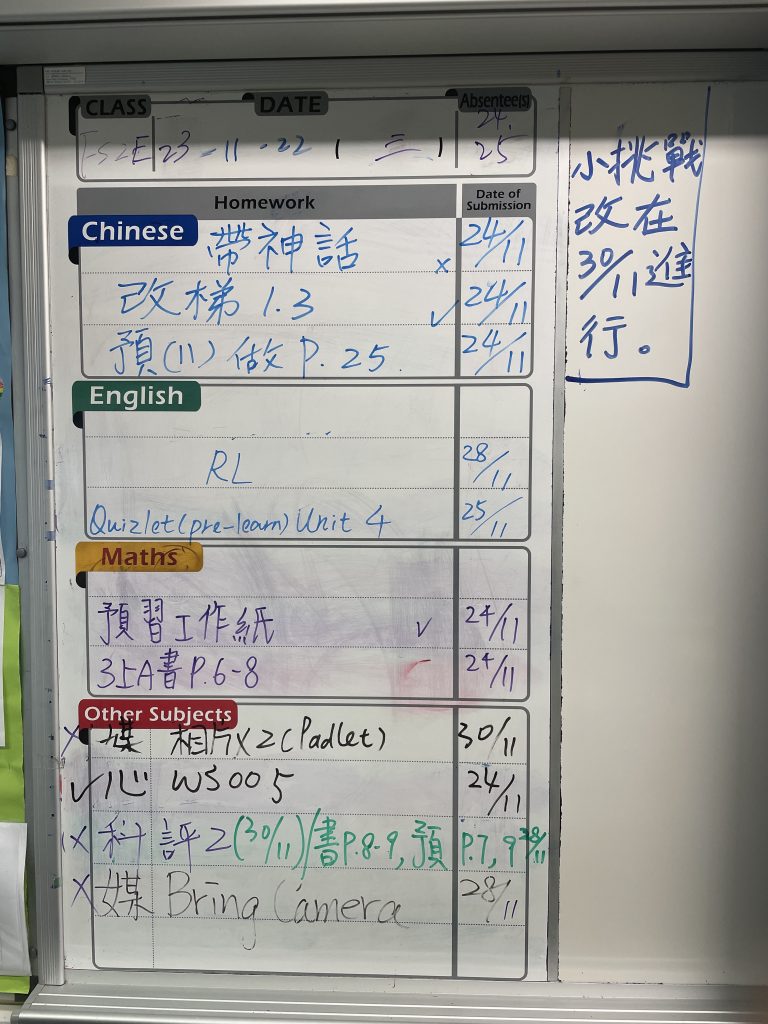 CLASS DATE Absentee(s)
23-11-22 (三) 24.
25
Homework Date of Submission
Chinese 帶神話 × 24/11
改梯 1.3 ✓ 24/11
預(11) 做 P. 25. 24/11
English
RL 28/11
Quizlet(pre-learn) Unit 4 25/11
Maths
預習工作紙 ✓ 24/11
3上A書P.6-8 24/11
Other Subjects
× 媒 相片×2 (Padlet) 30/11
✓ 心 WS005 24/11
× 科 評2 (30/11)/書P.8-9, 預 P.7, 9
× 媒 Bring Camera 28/11
小挑戰
改在
30/11進
行。